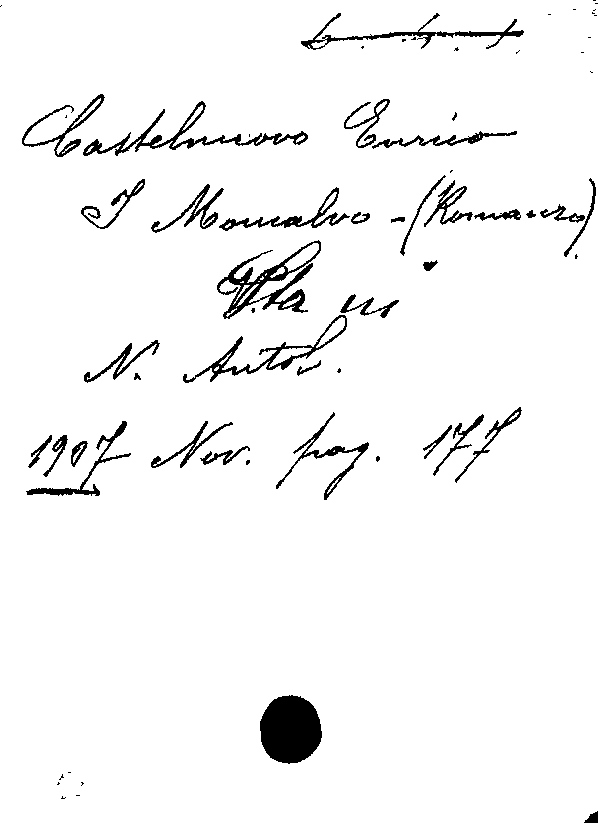 6. 4. 1
Castelnuovo Enrico
I Moncalvo - (Romanzo)
P.ta in
N. Antol.
1907 Nov. pag. 177